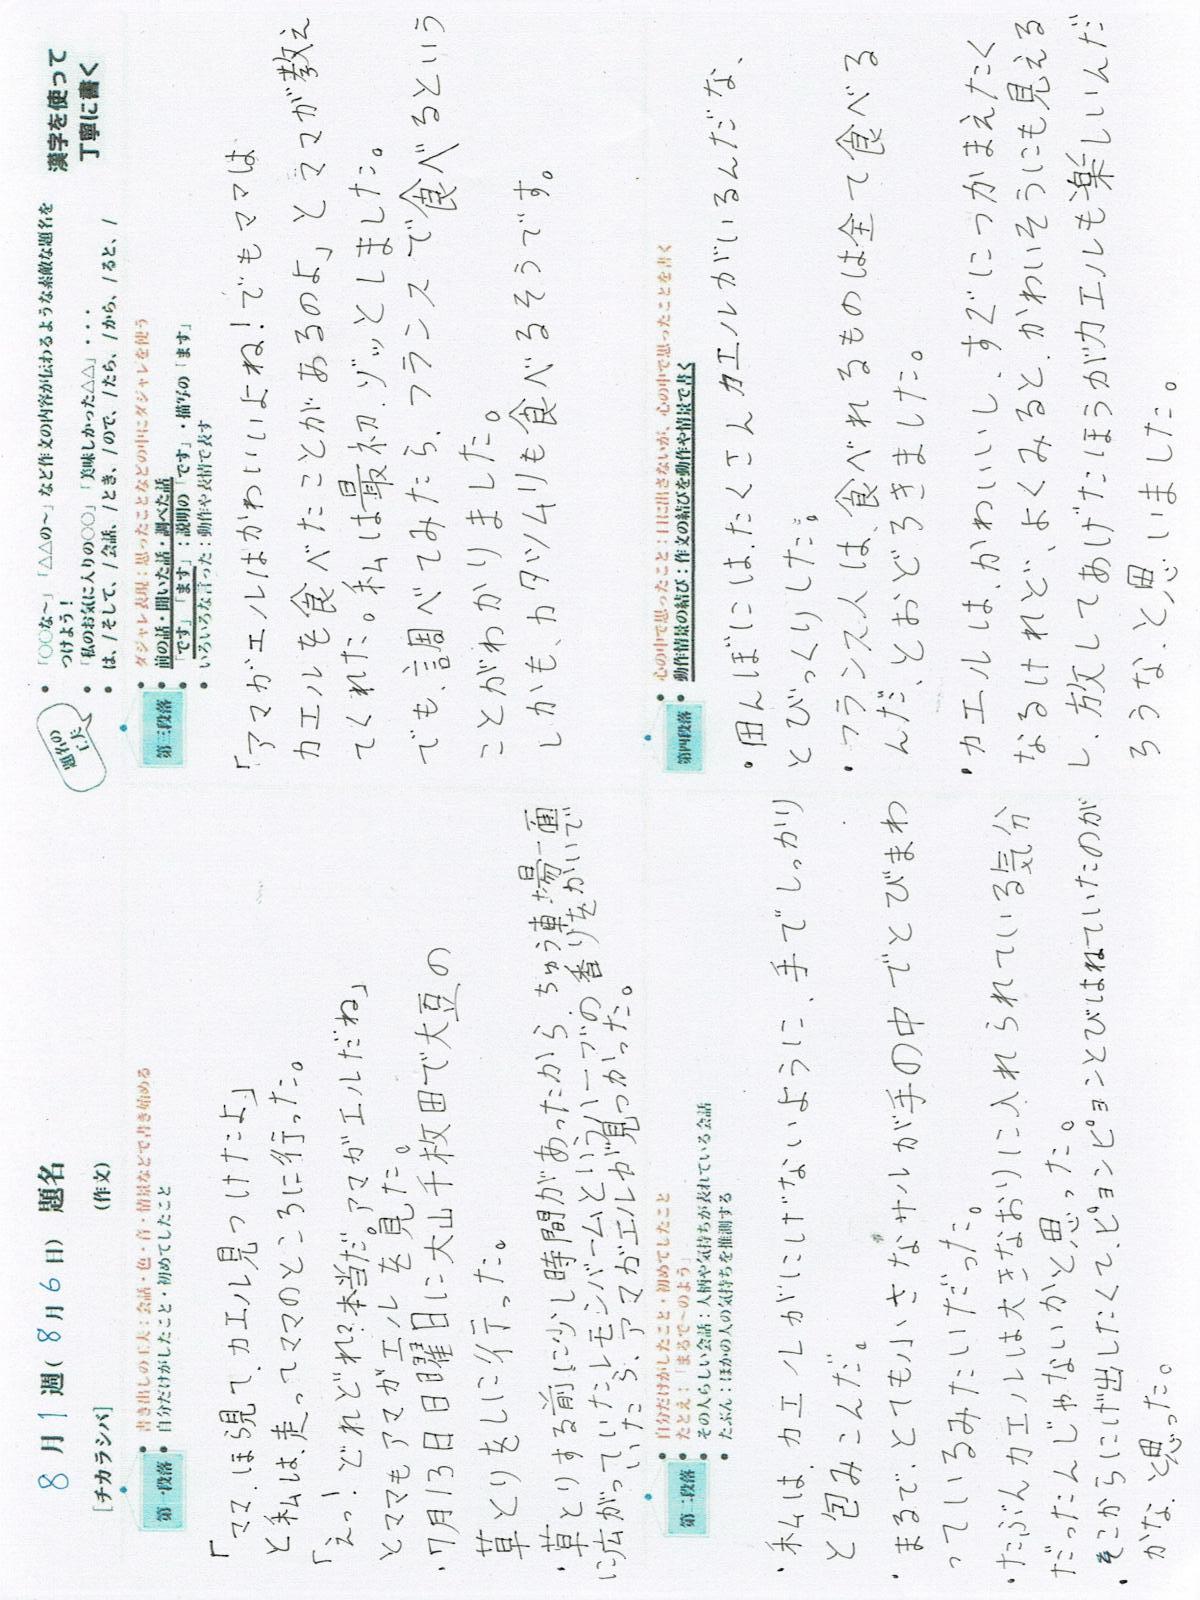 8月1週(8月6日) 題名
[チカラシバ] (作文)
題名の工夫
•「○○な〜」「△△の〜」など作文の内容が伝わるような素敵な題名を
つけよう！
•「私のお気に入りの○○」「美味しかった△△」・・・
•は、/そして、/会話、/とき、/ので、/たら、/から、/ると、/
漢字を使って
丁寧に書く
第一段落
•書き出しの工夫：会話・色・音・情景などで書き始める
•自分だけがしたこと・初めてしたこと
「ママ、ほら見て、カエル見つけたよ」
と私は、走ってママのところに行った。
「えっ！どれどれ？本当だ。アマガエルだね」
とママもアマガエルを見た。
・7月13日日曜日に大山千枚田で大豆の
草とりをしに行った。
・草とりする前に少し時間があったから、ちゅう車場一面
に広がっていたレモンバームというハーブの香りをかいで
いたら、アマガエルが見つかった。
第二段落
•自分だけがしたこと・初めてしたこと
•たとえ：「まるで〜のよう」
•その人らしい会話：人柄や気持ちが表れている会話
•たぶん：ほかの人の気持ちを推測する
・私は、カエルがにげないように、手でしっかり
と包みこんだ。
・まるで、とても小さなサルが手の中でとびまわ
っているみたいだった。
・たぶんカエルは大きなおりに入れられている気分
だったんじゃないかと思った。
・そこからにげ出したくて、ピョンピョンとびはねていたのが
かな、と思った。
第三段落
•ダジャレ表現：思ったことなどの中にダジャレを使う
•前の話・聞いた話・調べた話
•「です」「ます」：説明の「です」・描写の「ます」
•いろいろな言った：動作や表情で表す
「アマガエルはかわいいよね！でもママは
カエルを食べたことがあるのよ」とママが教え
てくれた。私は最初、ゾッとしました。
でも、調べてみたら、フランスで食べるという
ことがわかりました。
しかも、カタツムリも食べるそうです。
第四段落
•心の中で思ったこと：口に出さないが、心の中で思ったことを書く
•動作情景の結び：作文の結びを動作や情景で書く
・田んぼには、たくさんカエルがいるんだな、
とびっくりした。
・フランス人は、食べれるものは全て食べる
んだ、とおどろきました。
・カエルは、かわいいし、すぐにつかまえたく
なるけれど、よくみると、かわいそうにも見える
し、放してあげたほうがカエルも楽しいんだ
ろうな、と思いました。